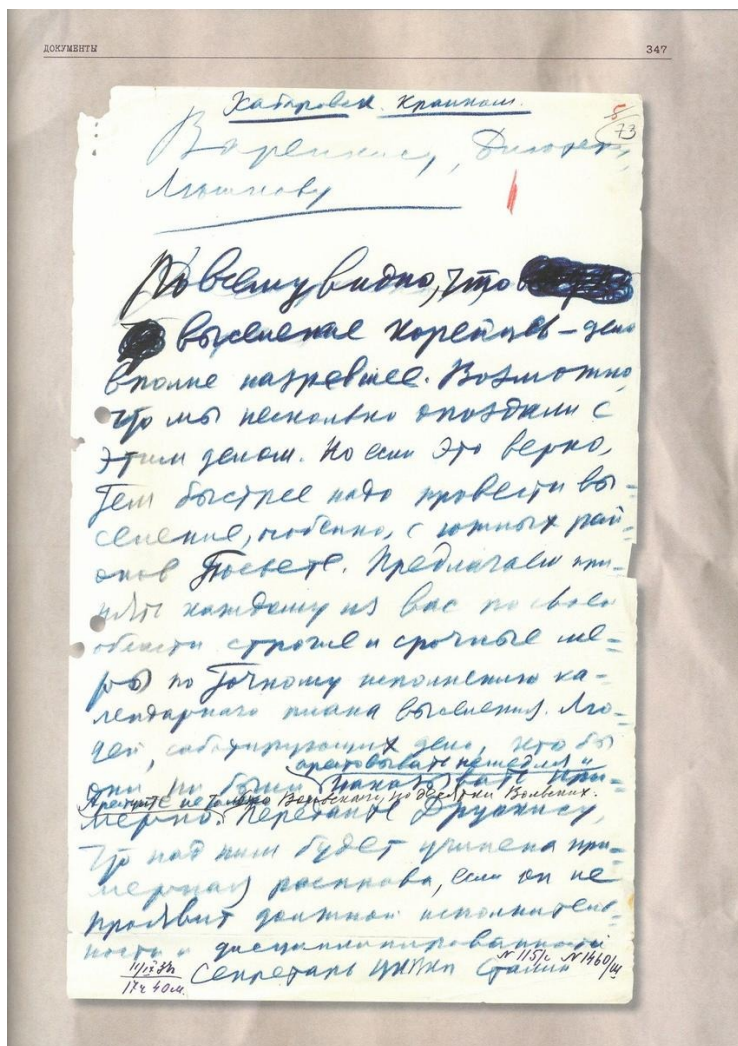 ДОКУМЕНТЫ
347
Хабаровск. Крайком.
5/73
Варейкису,
Люшкову
По всему видно, что
выселение корейцев – дело
вполне назревшее. Возможно,
что мы несколько опоздали с
этим делом. Но если это верно,
тем быстрее надо провести вы-
селение, особенно, с южных рай-
онов Посьете. Предлагаем при-
нять каждому из вас по своей
области строгие и срочные ме-
ры по точному исполнению ка-
лендарного плана выселения. Лю-
дей, саботирующих дело, кто бы
арестовывать немедля и
они ни были, наказывать при-
Арестуйте не только Вольского, но десятки Вольских.
мерно. Передайте Друскису,
что над ним будет учинена при-
мерная расправа, если он не
проявит должной исполнитель-
ности и дисциплинированности
№ 1460/ш
11/IX 37г. Секретарь ЦК ВКП Сталин
17ч 40м.